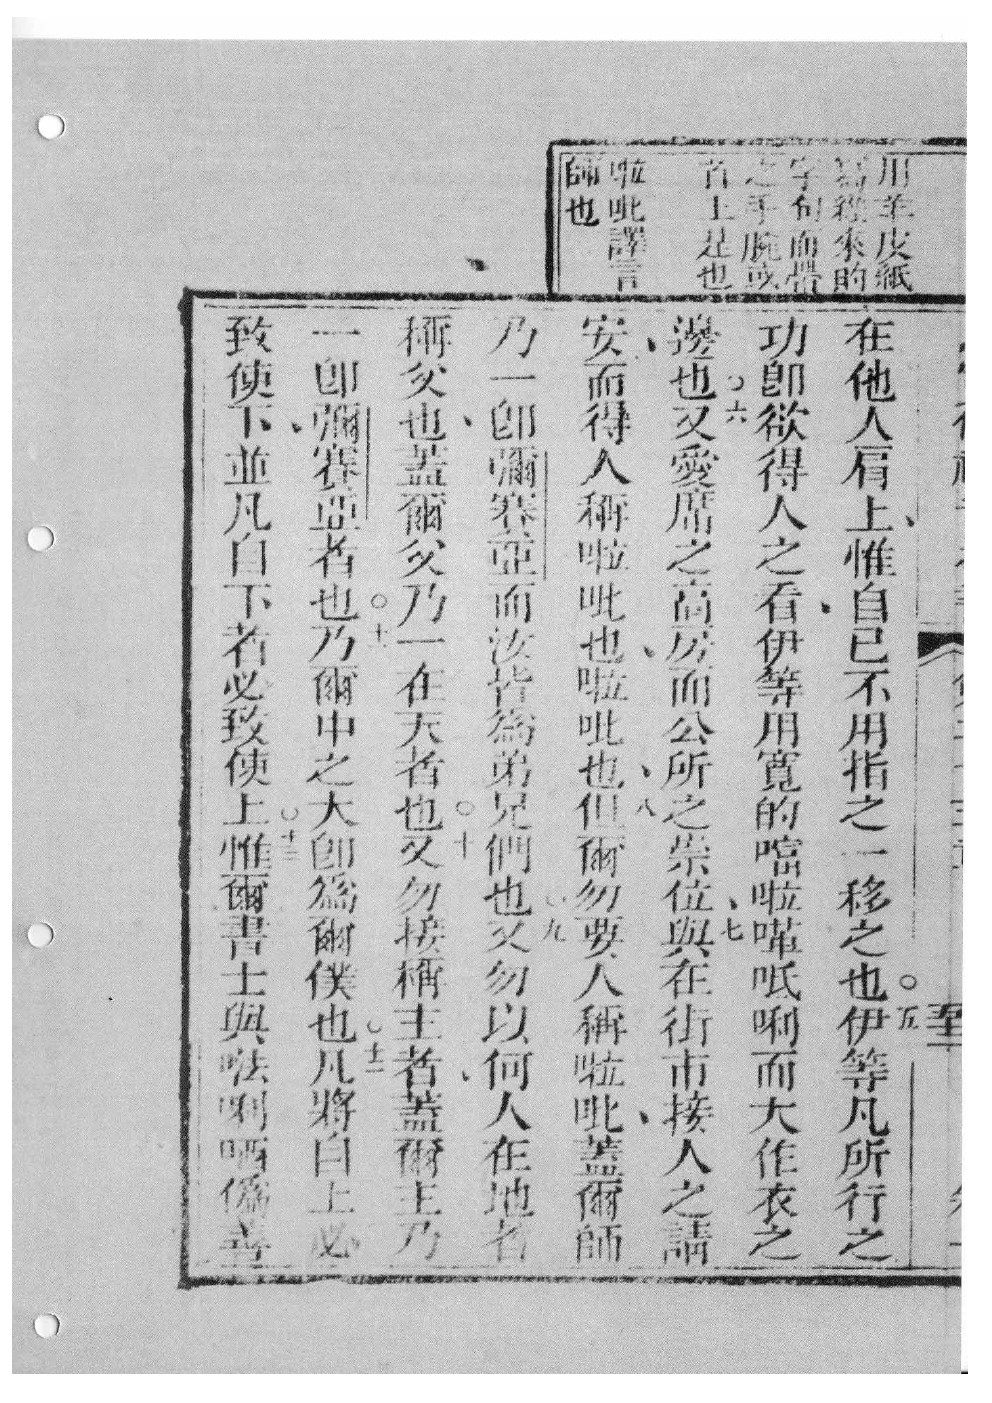 用羊皮紙
寫經來的
字句而帶
之手腕或
首上是也
啦吡譯言
師也
在他人肩上惟自已不用指之一移之也○五伊等凡所行之
功卽欲得人之看伊等用寬的噹啦㖸呧唎而大作衣之
邊也○六又愛席之高房而公所之崇位七與在街市接人之請
安而得人稱啦吡也啦吡也八但爾勿要人稱啦吡蓋爾師
乃一卽彌賽亞而汝皆為弟兄們也○九又勿以何人在地者
稱父也蓋爾父乃一在天者也○十又勿接稱主者蓋爾主乃
一卽彌賽亞者也○十一乃爾中之大卽為爾僕也○十二凡將自上必
致使下並凡自下者必致使上○十三惟爾書士與㕸唎哂僞善